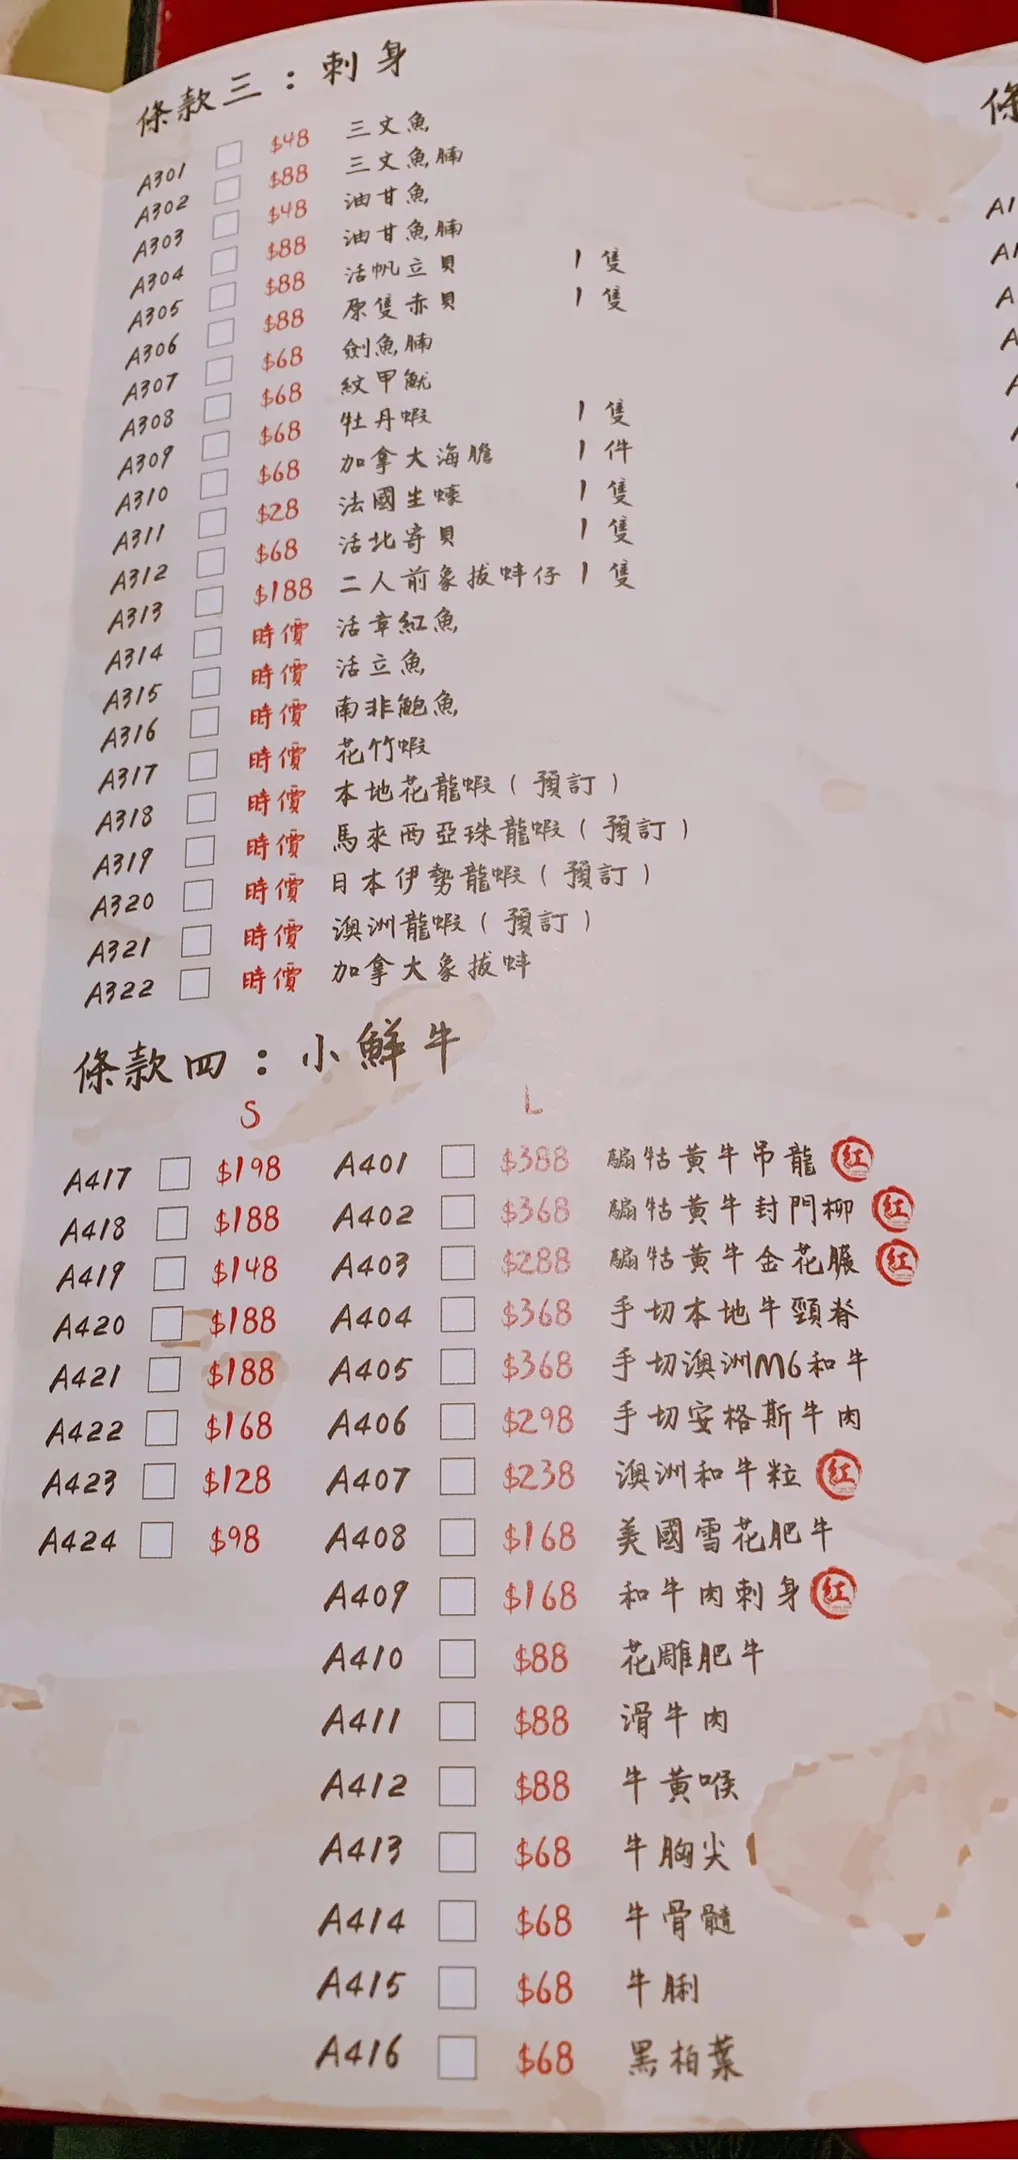 條款三：刺身
A301 □ $48 三文魚
A302 □ $88 三文魚腩
A303 □ $48 油甘魚
A304 □ $88 油甘魚腩
A305 □ $88 活帆立貝 1隻
A306 □ $88 原隻赤貝 1隻
A307 □ $68 劍魚腩
A308 □ $68 紋甲魷
A309 □ $68 牡丹蝦 1隻
A310 □ $68 加拿大海膽 1件
A311 □ $28 法國生蠔 1隻
A312 □ $68 活北寄貝 1隻
A313 □ $188 二人前象拔蚌仔 1隻
A314 □ 時價 活章紅魚
A315 □ 時價 活立魚
A316 □ 時價 南非鮑魚
A317 □ 時價 花竹蝦
A318 □ 時價 本地花龍蝦（預訂）
A319 □ 時價 馬來西亞珠龍蝦（預訂）
A320 □ 時價 日本伊勢龍蝦（預訂）
A321 □ 時價 澳洲龍蝦（預訂）
A322 □ 時價 加拿大象拔蚌
條款四：小鮮牛
S L
A417 □ $198 A401 □ $388 騸牯黃牛吊龍 紅
A418 □ $188 A402 □ $368 騸牯黃牛封門柳 紅
A419 □ $148 A403 □ $288 騸牯黃牛金花𦟌 紅
A420 □ $188 A404 □ $368 手切本地牛頸脊
A421 □ $188 A405 □ $368 手切澳洲M6和牛
A422 □ $168 A406 □ $298 手切安格斯牛肉
A423 □ $128 A407 □ $238 澳洲和牛粒 紅
A424 □ $98 A408 □ $168 美國雪花肥牛
A409 □ $168 和牛肉刺身 紅
A410 □ $88 花雕肥牛
A411 □ $88 滑牛肉
A412 □ $88 牛黃喉
A413 □ $68 牛胸尖
A414 □ $68 牛骨髓
A415 □ $68 牛脷
A416 □ $68 黑柏葉
條
A1
A1
A
A
A